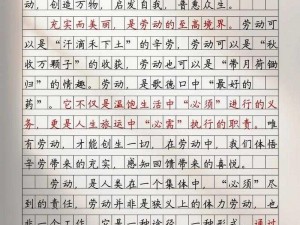 动，创造万物，启发自我，普惠众生。
充实而美丽，是劳动的至高境界。劳动可
以是“汗滴禾下土”的辛劳，劳动可以是“秋
收万颗子”的收获，劳动也可以是“带月荷锄
归”的情趣。劳动，是歌德口中“最好的
药”。它不仅是温饱生活中“必须”进行的义
务，更是人生旅途中“必需”执行的职责。唯
有劳动，才能创造一切，在劳动中，我们体悟
辛劳带来的充实，感知回馈带来的喜悦。
劳动，是人类在一个集体中，“必须”尽
到的责任，劳动并非是狭义上的体力劳动，也
非一个工作，它是一种途径，一种形式，通过